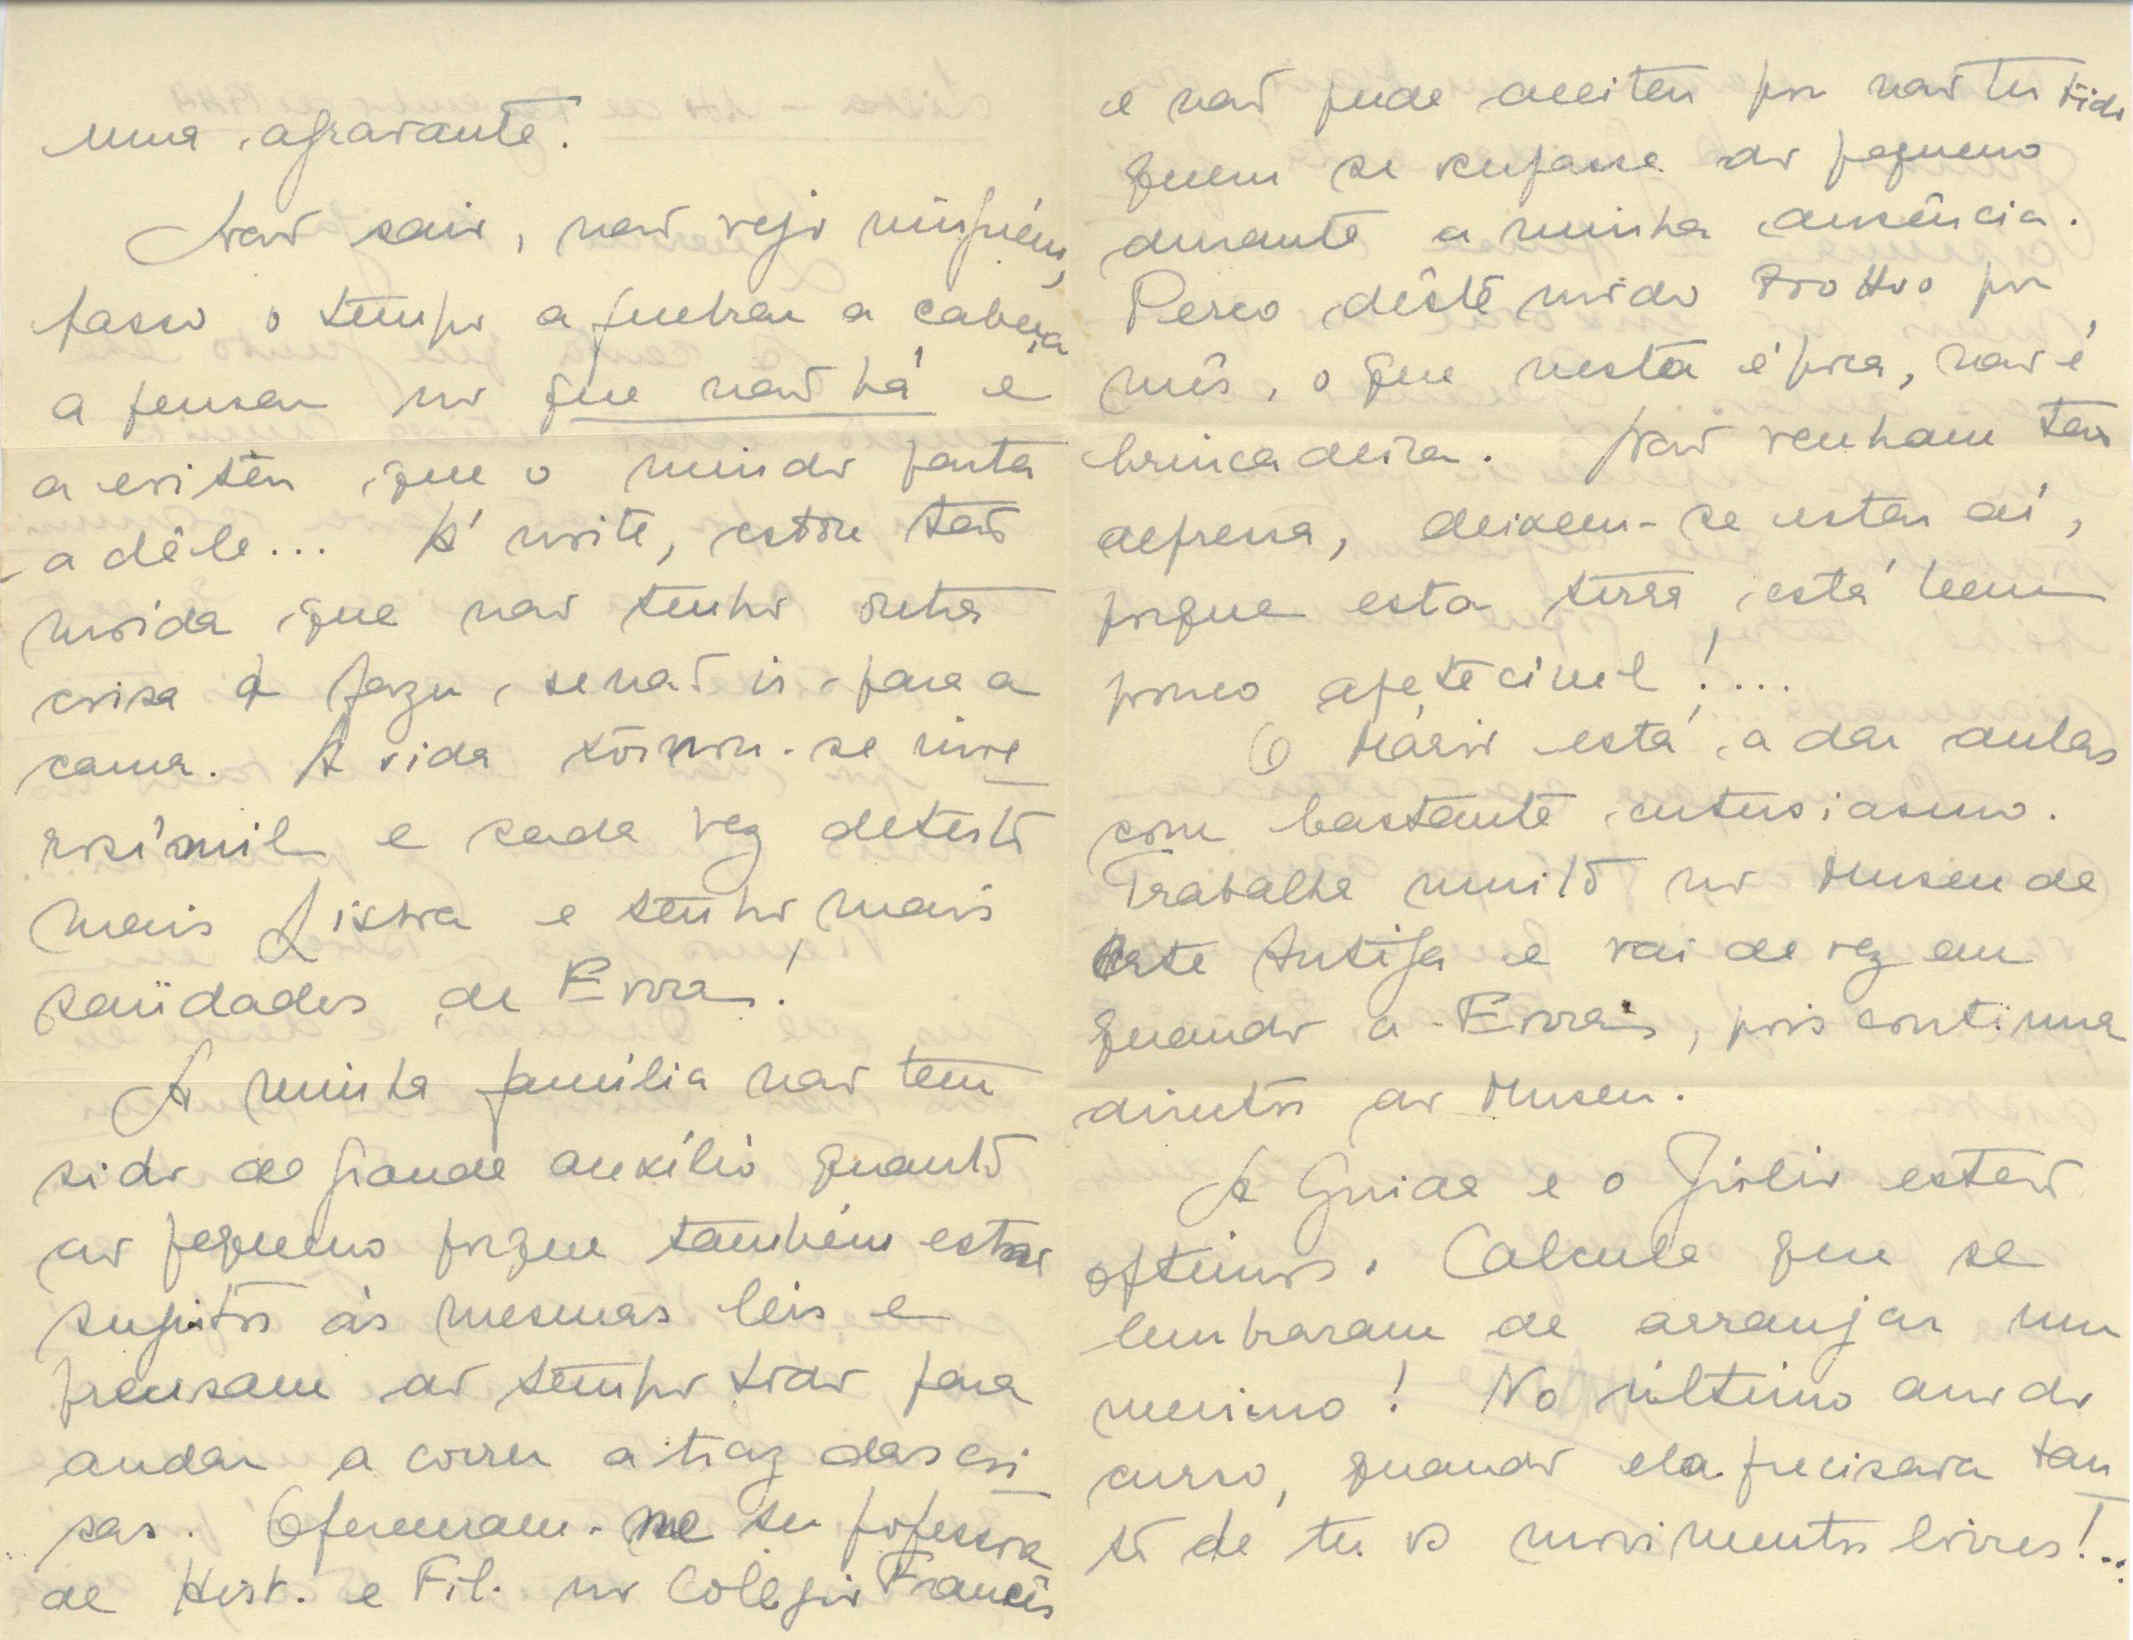 uma agravante.
Não saio, não vejo ninguém,
passo o tempo a quebrar a cabeça
a pensar no que não há e
a evitar que o miúdo parta
a dêle... À noite, estou tão
moída que não tenho outra
coisa a fazer, senão ir para a
cama. A vida tornou-se inve
rosímil e cada vez detesto
mais Lisboa e tenho mais
saüdades de Evora!
A minha família não tem
sido de grande auxílio quanto
ao pequeno porque também estão
sujeitos às mesmas leis e
precisam do tempo todo para
andar a correr atraz das coi
sas. Ofereceram-me ser professora
de Hist. e Fil. no Colégio Francês
e não pude aceitar por não ter tido
quem se ocupasse do pequeno
durante a minha ausência.
Perco dêste modo 700$00 por
mês, o que nesta época, não é
brincadeira. Não venham tão
depressa, deixem-se estar aí,
porque esta terra está bem
pouco apetecível!...
O Mário está a dar aulas
com bastante entusiasmo.
Trabalha muito no Museu de
Arte Antiga e vai de vez em
quando a Evora, pois continua
director do Museu.
A Guida e o Júlio estão
óptimos. Calcule que se
lembraram de arranjar um
menino! No último ano do
curso, quando ela precisava tan
to de ter os movimentos livres!...